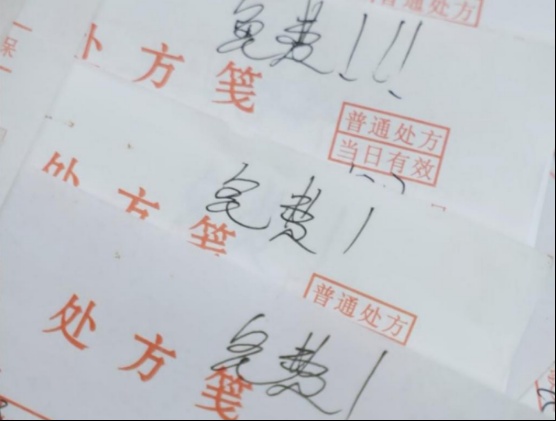 普通处方
免费!!!
处方笺
普通处方
当日有效
免费!
处方笺
普通处方
免费!
处方笺